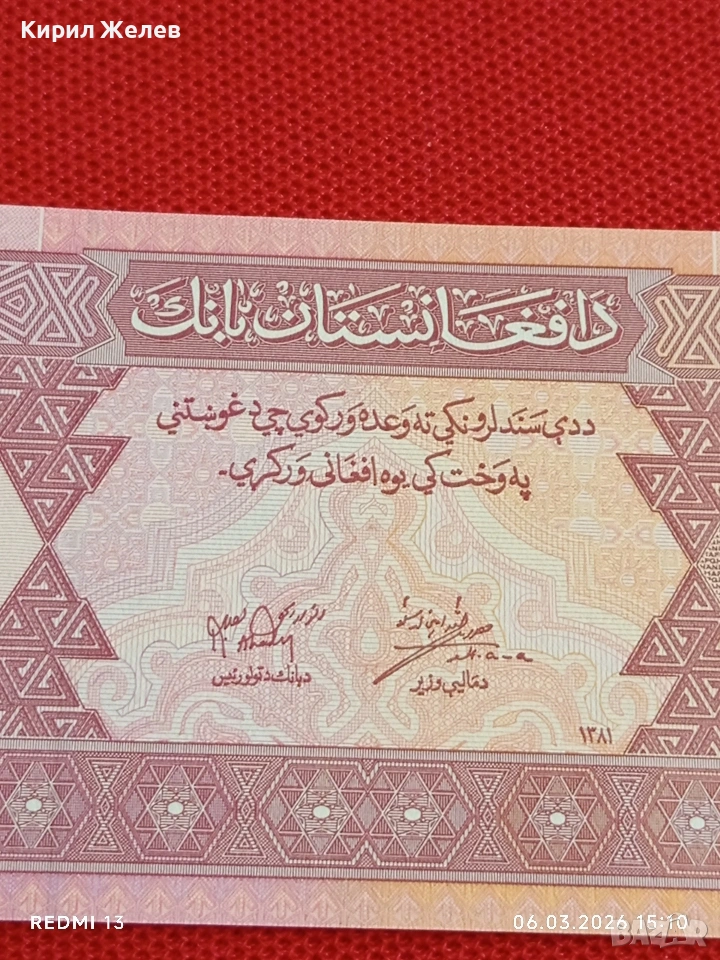 Кирил Желев
دافغانستان بانك
ددې سند لرونكي ته وعده وركوي چي د غوښتني
په وخت كي يوه افغانی وركړي۔
دبانك د ټولو رئيس
د ماليې وزير
۱۳۸۱
REDMI 13
06.03.2026 15:10
BAZAR